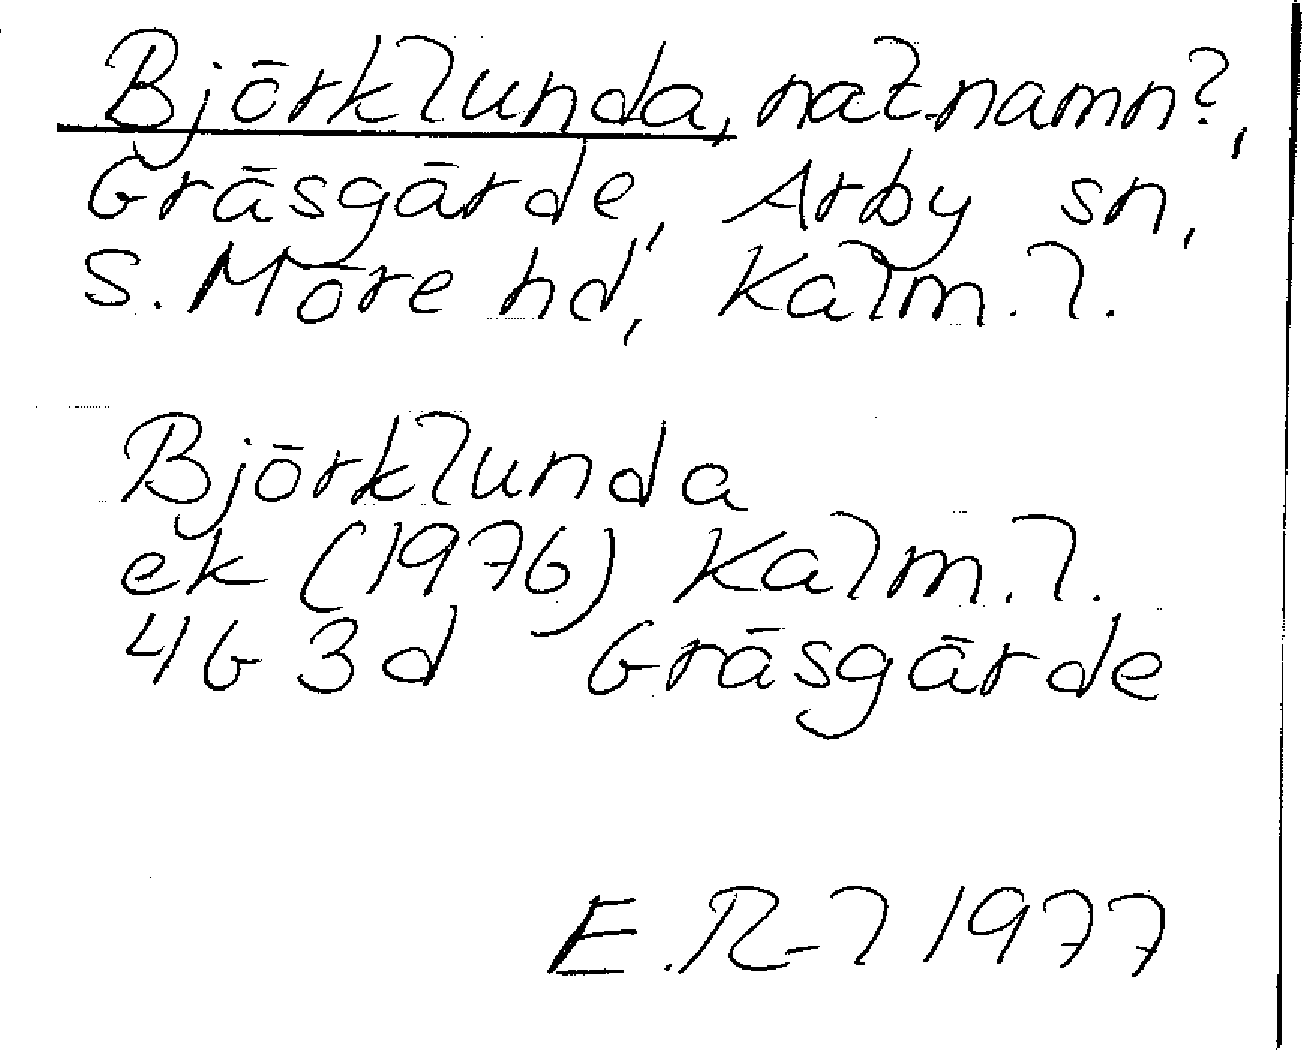 Björklunda, nat.namn?,
Gräsgärde, Arby sn,
S. Möre hd, Kalm. l.
Björklunda
ek (1976) Kalm. l.
4G 3d Gräsgärde
E. R-l 1977